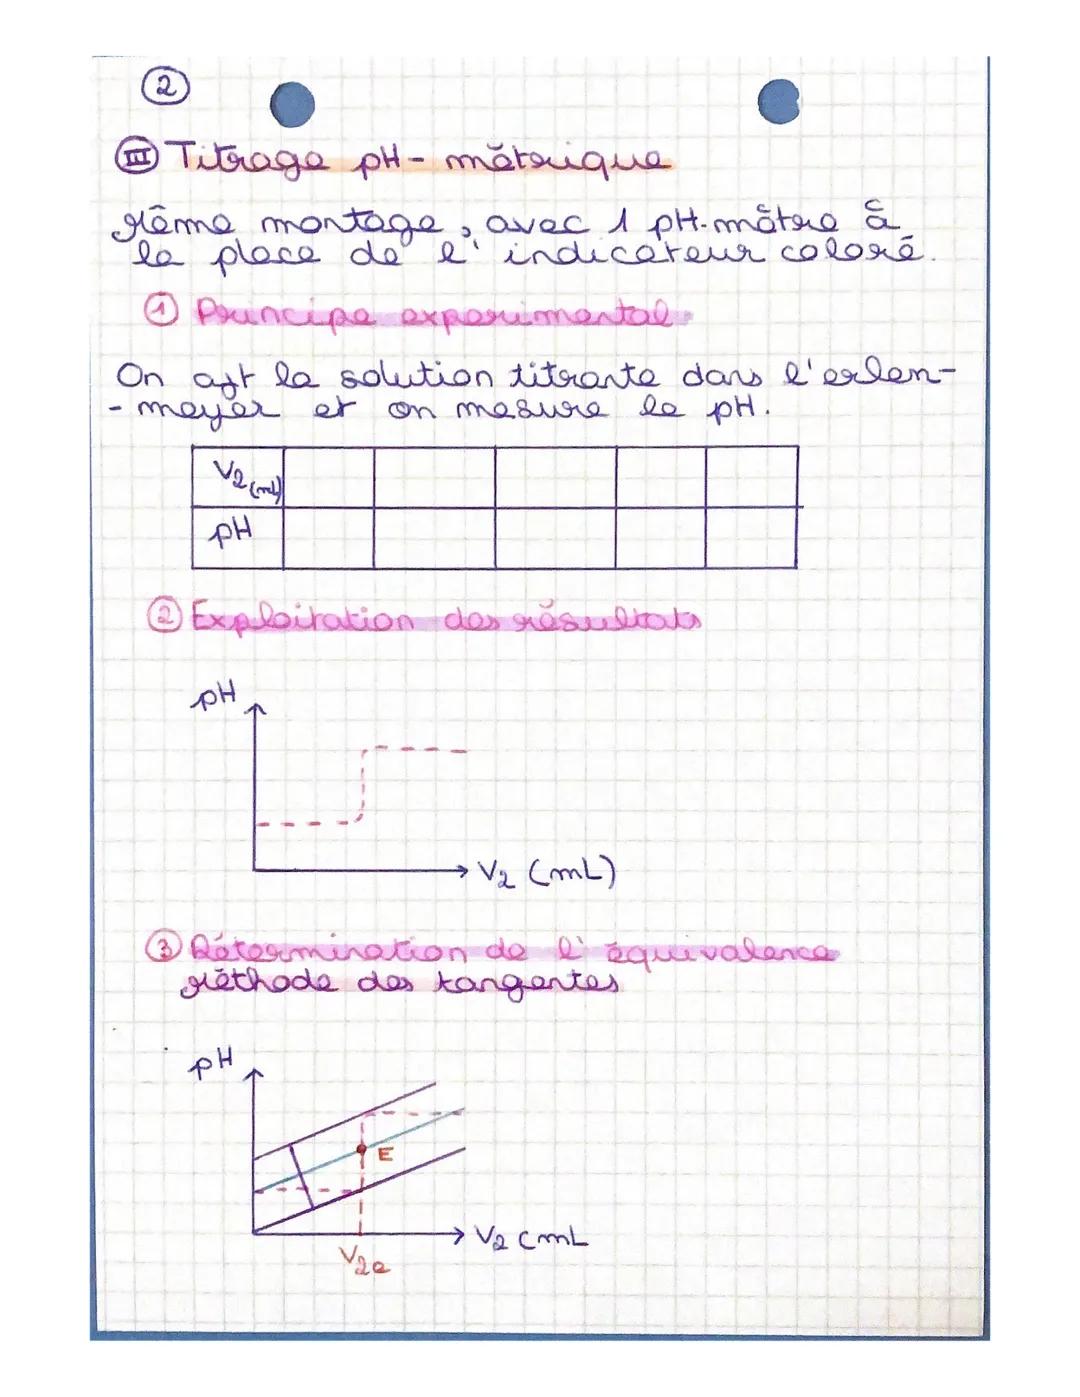 2
III Titrage pH-métrique
Même montage, avec 1 pH-mètre à
la place de l'indicateur coloré.
1 Principe expérimental
On ajt la solution titrante dans l'erlen-
-meyer et on mesure le pH.
V2 (mL)
pH
2 Exploitation des résultats
pH
V2 (mL)
3 Détermination de l'équivalence
Méthode des tangentes
pH
E
V2 (mL
V2e